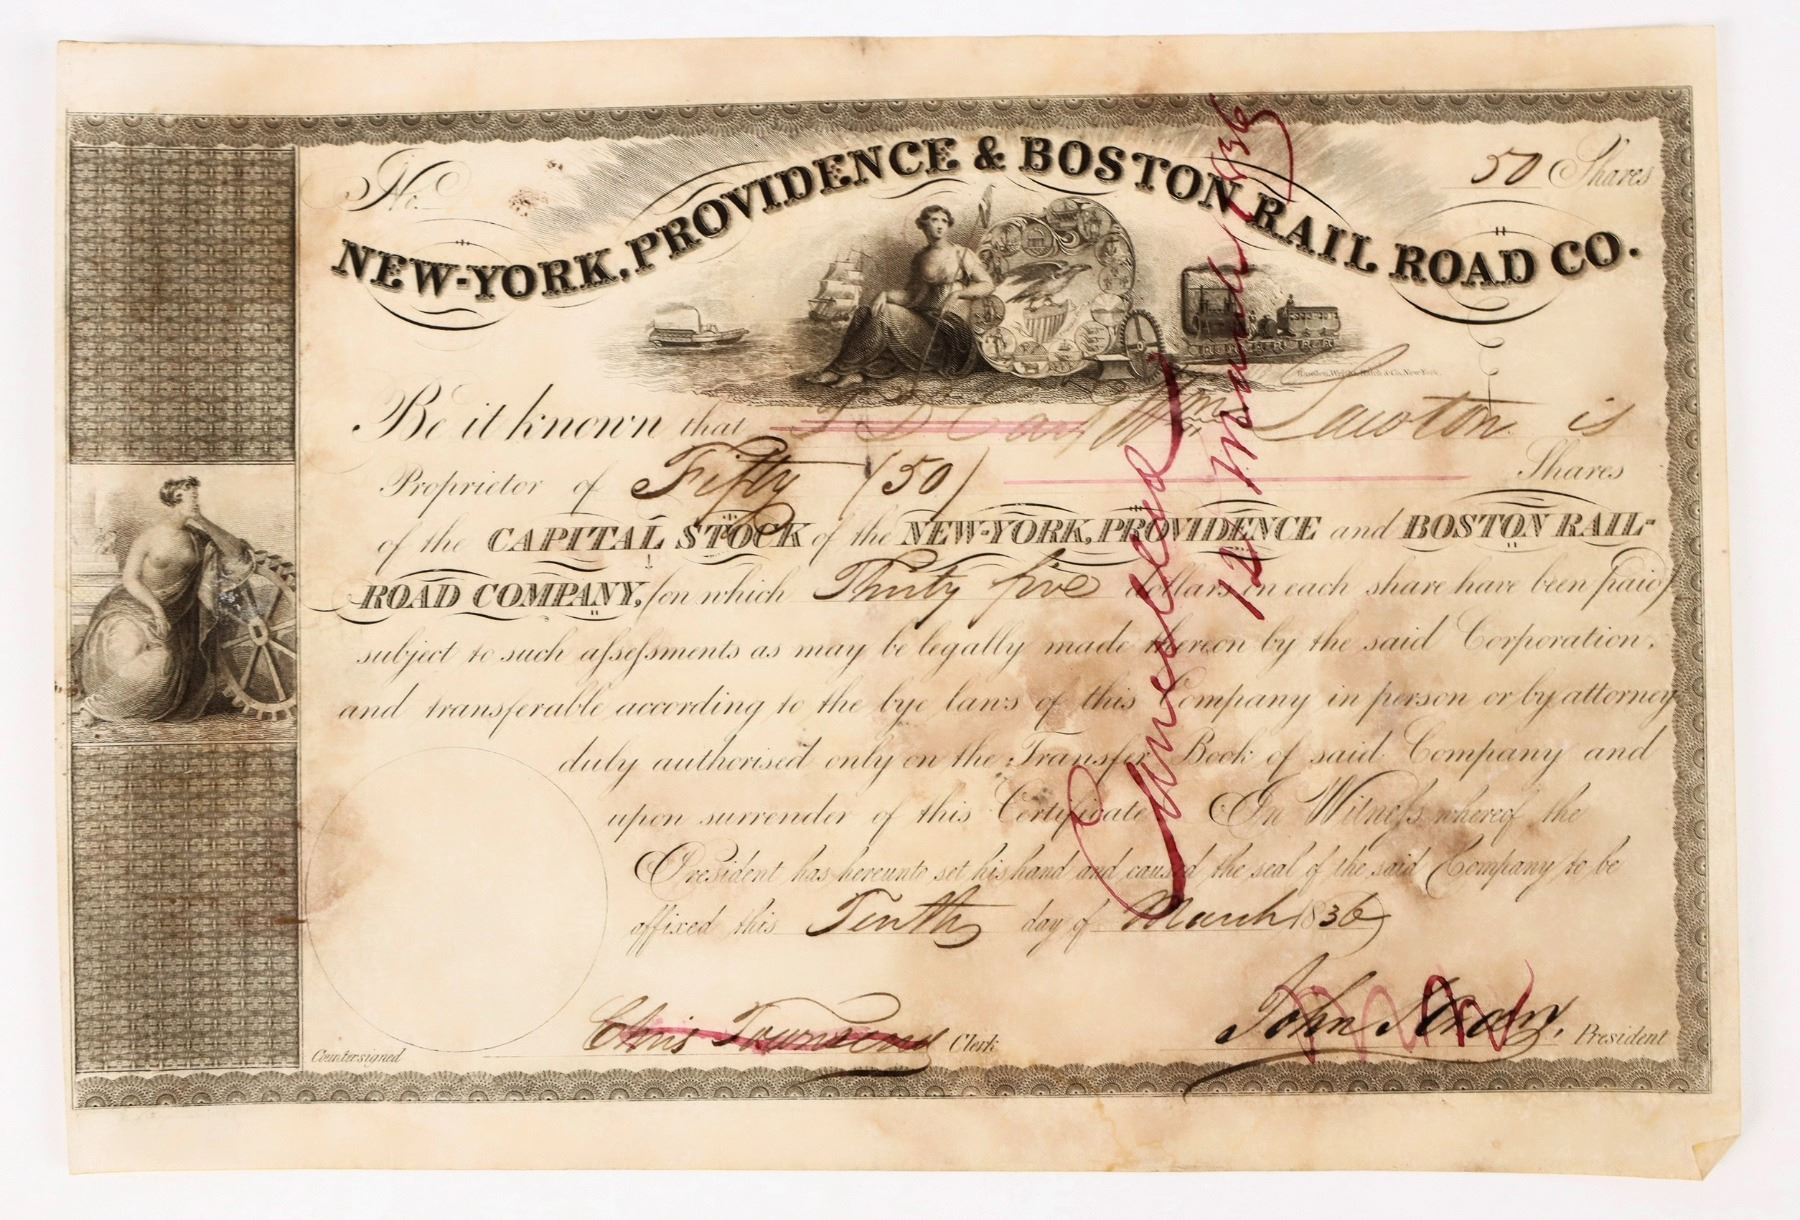 No.
50 Shares
NEW-YORK, PROVIDENCE & BOSTON RAIL ROAD CO.
Rawdon, Wright, Hatch & Co. New York.
Be it known that Wm Lawton is
Proprietor of Fifty (50) Shares
of the CAPITAL STOCK of the NEW-YORK, PROVIDENCE and BOSTON RAIL-
ROAD COMPANY, (on which Thirty five dollars on each share have been paid)
subject to such assessments as may be legally made thereon by the said Corporation,
and transferable according to the bye laws of this Company in person or by attorney
duly authorised only on the Transfer Book of said Company and
upon surrender of this Certificate. In Witness whereof the
President has hereunto set his hand and caused the seal of the said Company to be
affixed this Tenth day of March 1836
Countersigned Chris Townsend Clerk
John S. President
Cancelled
12 March 1836